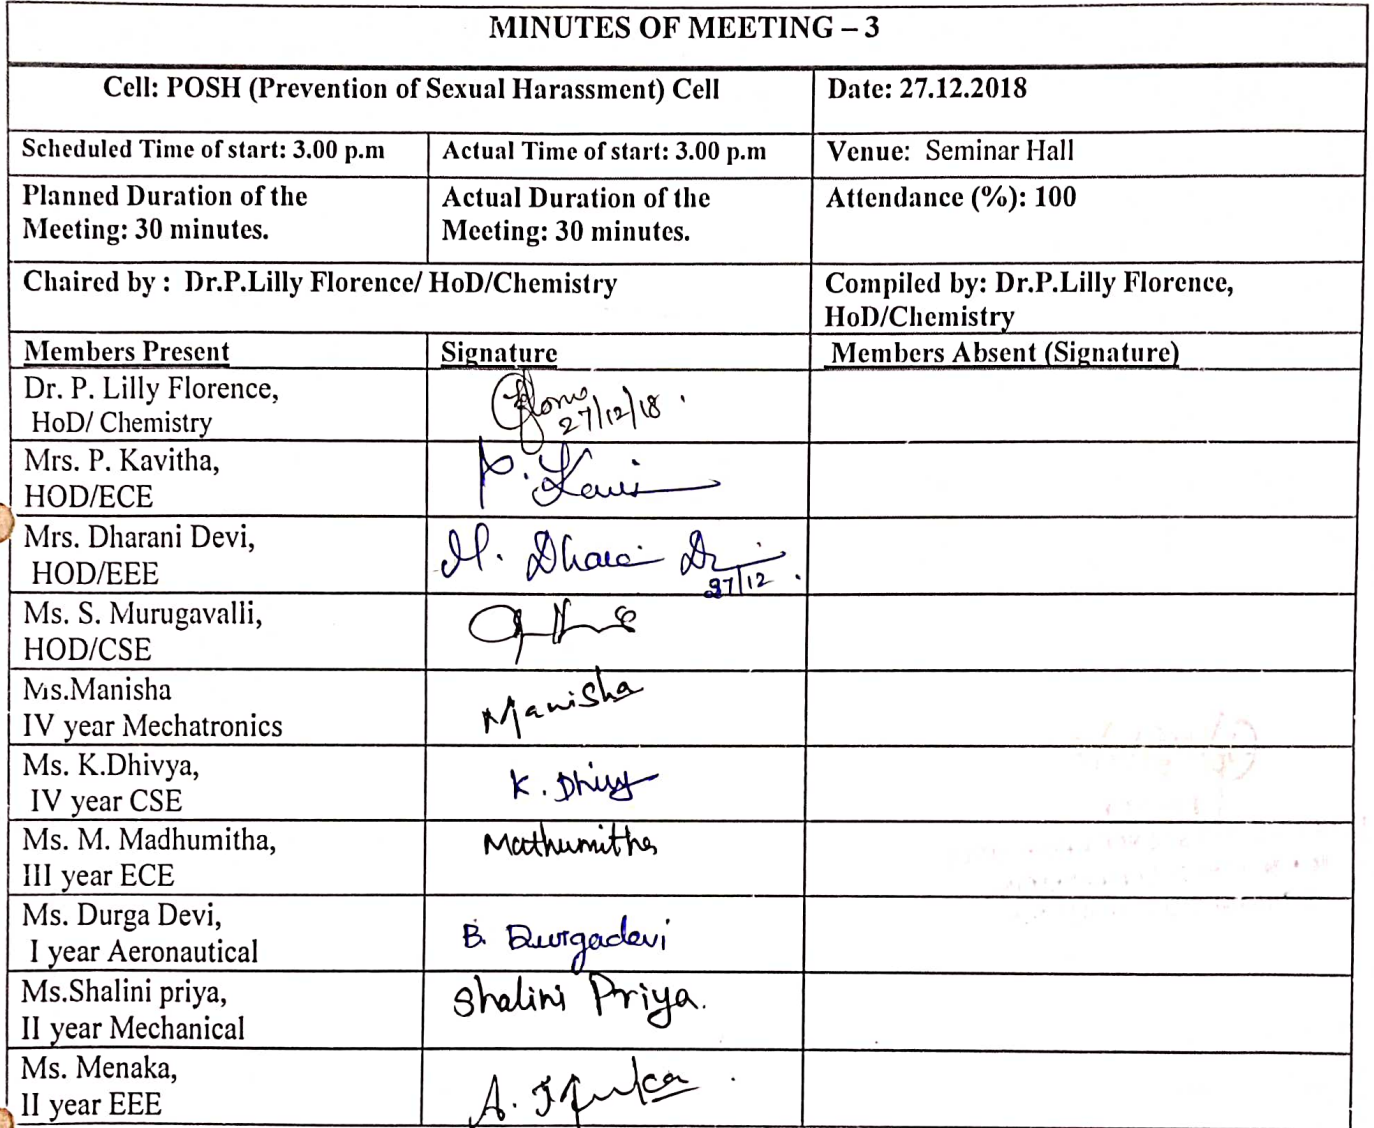 MINUTES OF MEETING – 3
Cell: POSH (Prevention of Sexual Harassment) Cell
Date: 27.12.2018
Scheduled Time of start: 3.00 p.m
Actual Time of start: 3.00 p.m
Venue: Seminar Hall
Planned Duration of the
Meeting: 30 minutes.
Actual Duration of the
Meeting: 30 minutes.
Attendance (%): 100
Chaired by : Dr.P.Lilly Florence/ HoD/Chemistry
Compiled by: Dr.P.Lilly Florence,
HoD/Chemistry
Members Present
Signature
Members Absent (Signature)
Dr. P. Lilly Florence,
HoD/ Chemistry
27/12/18
Mrs. P. Kavitha,
HOD/ECE
P.
Mrs. Dharani Devi,
HOD/EEE
27/12
Ms. S. Murugavalli,
HOD/CSE
Ms.Manisha
IV year Mechatronics
Manisha
Ms. K.Dhivya,
IV year CSE
K. Dhivy
Ms. M. Madhumitha,
III year ECE
Mathumitha
Ms. Durga Devi,
I year Aeronautical
B. Durgadevi
Ms.Shalini priya,
II year Mechanical
Shalini Priya.
Ms. Menaka,
II year EEE
A.